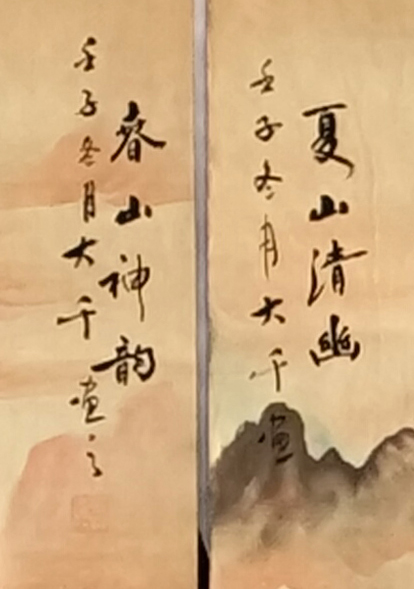 夏山清幽
壬子冬月大千画
春山神韵
壬子冬月大千画之